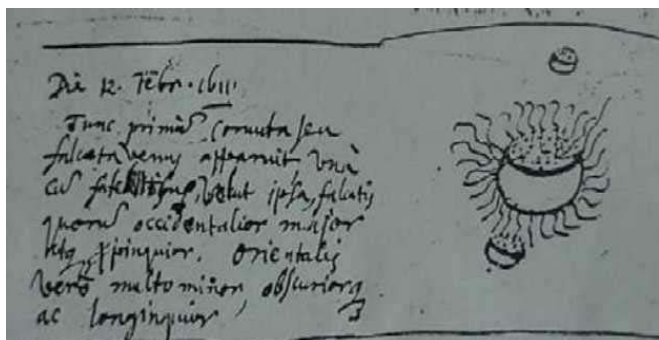 Die 12. Febr.
Tunc primũ cornuta seu
falcata venus apparuit Unà
cũ satellitibus, velut ipsa, falcatis
quorũ occidentalior major
atq ꝓpinquior. Orientalis
verò multo minor, obscuriorq
ac longinquior